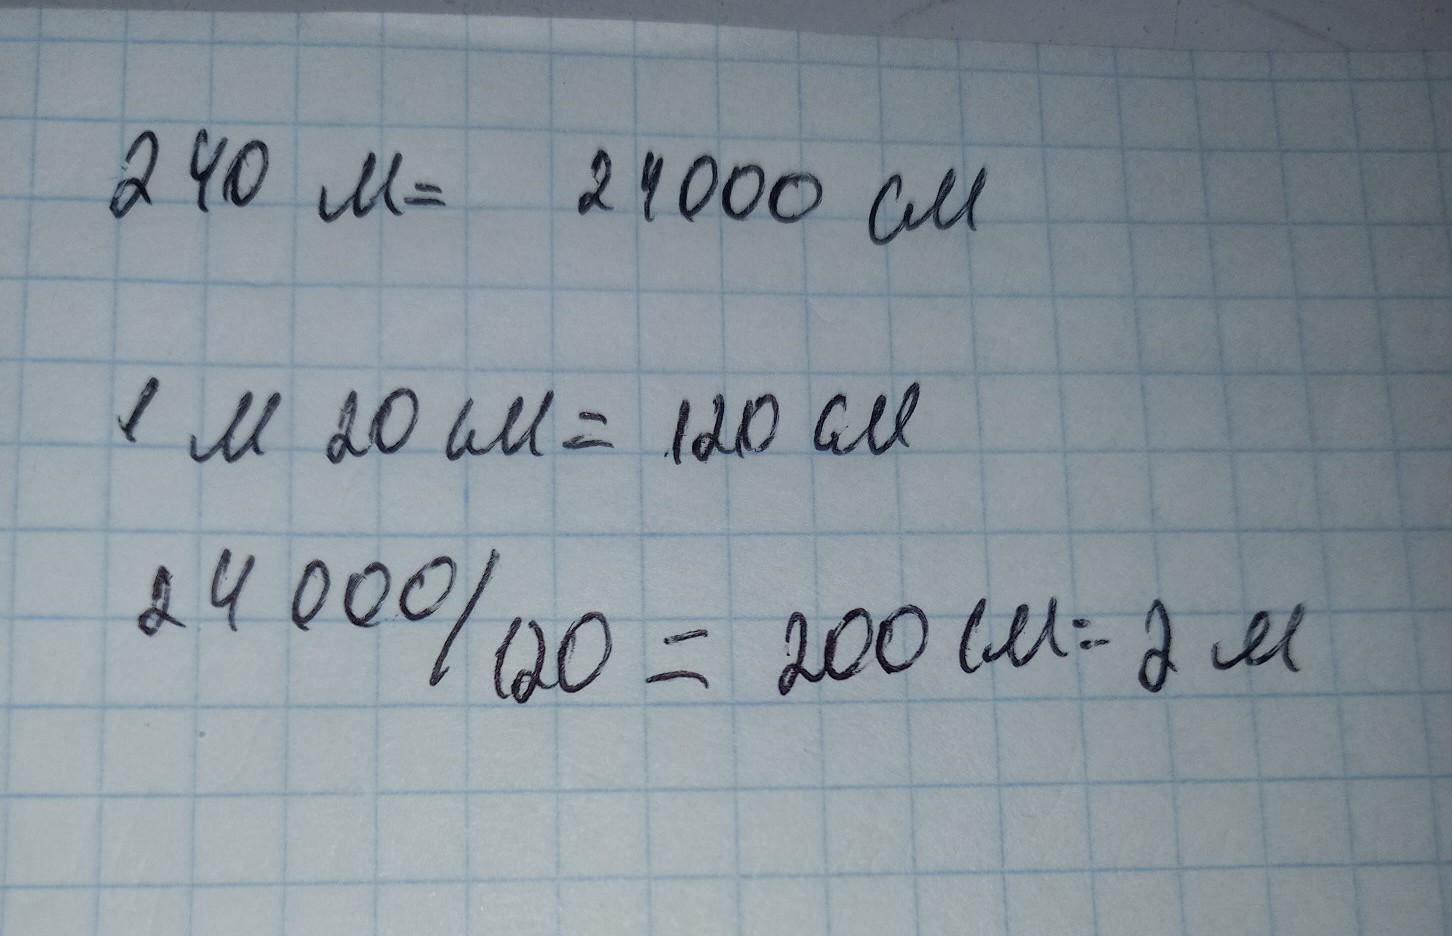 240 м= 24000 см
1 м 20 см = 120 см
24000/120 = 200 см = 2 м